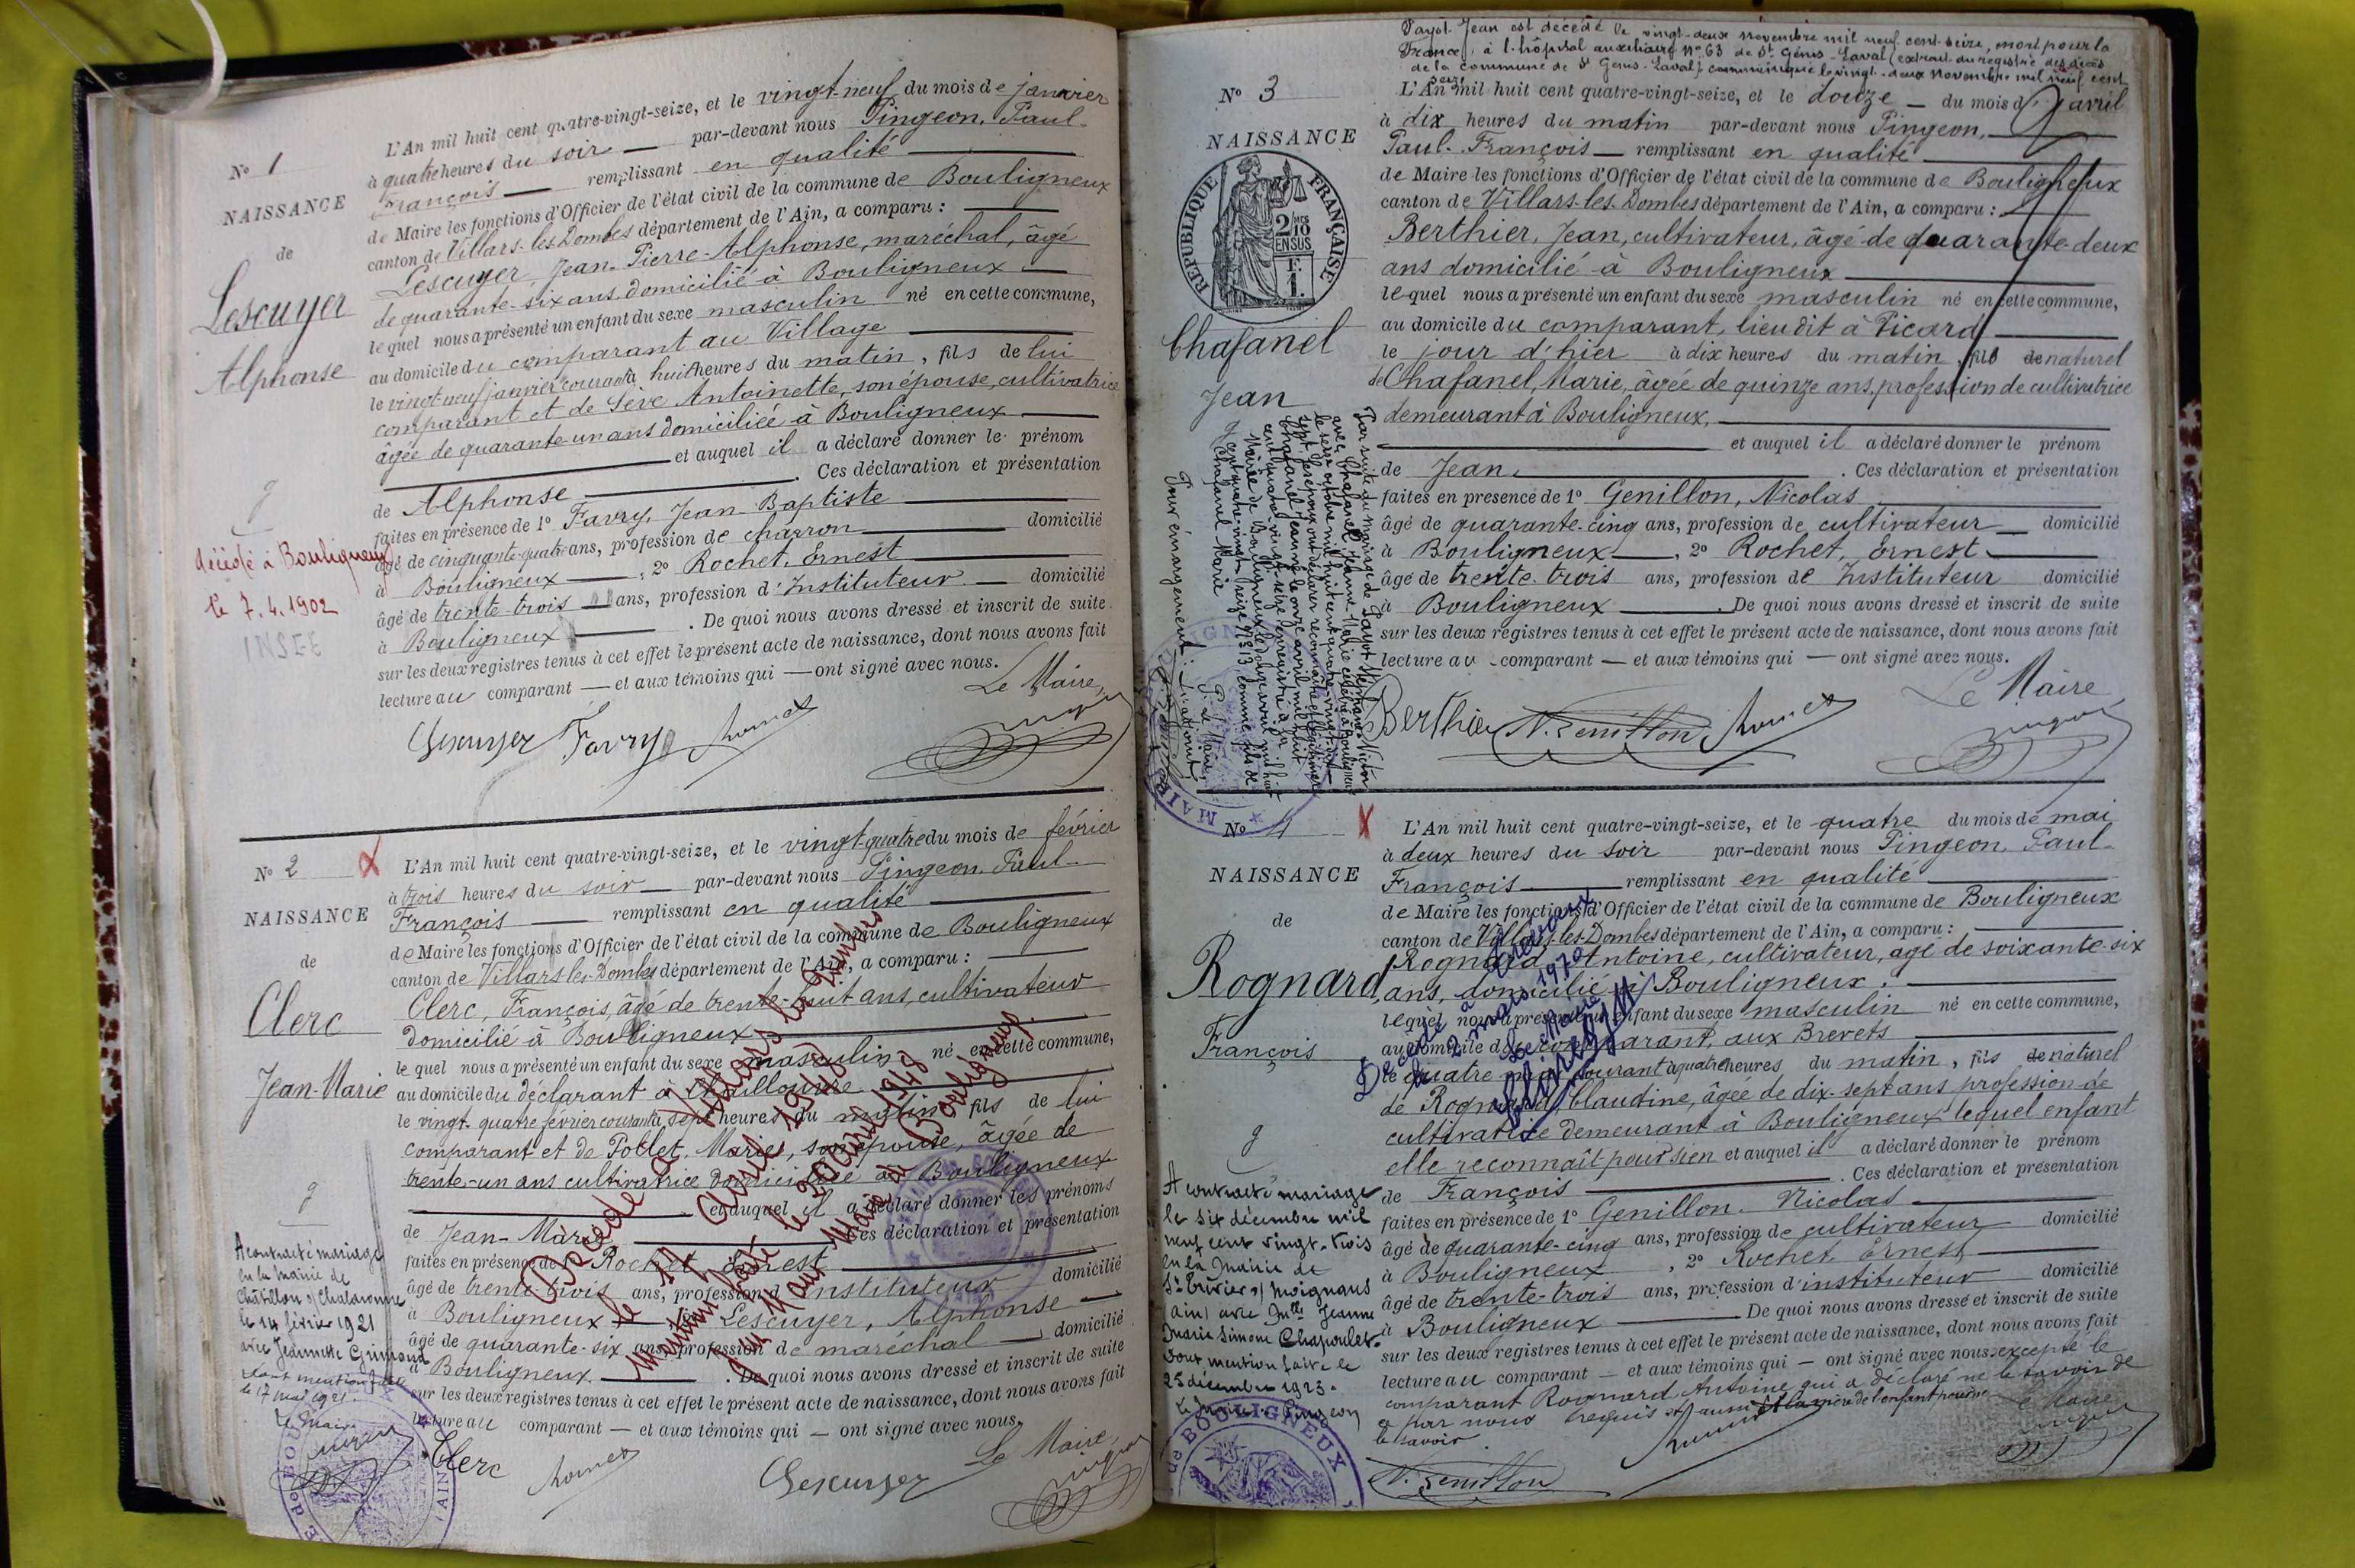 N° 1
NAISSANCE
de
Lescuyer
Alphonse
décédé à Bouligneux
le 7.4.1902
INSEE
L'An mil huit cent quatre-vingt-seize, et le vingt-neuf du mois de janvier
à quatre heures du soir — par-devant nous Pingeon, Paul-
François — remplissant en qualité
de Maire les fonctions d'Officier de l'état civil de la commune de Bouligneux
canton de Villars-les-Dombes département de l'Ain, a comparu :
Lescuyer, Jean-Pierre-Alphonse, maréchal, âgé
de quarante-six ans domicilié à Bouligneux
lequel nous a présenté un enfant du sexe masculin né en cette commune,
au domicile du comparant au Village
le vingt-neuf janvier courant à huit heures du matin, fils de lui
comparant et de Sève Antoinette, son épouse, cultivatrice
âgée de quarante-un ans domiciliée à Bouligneux
et auquel il a déclaré donner le prénom
de Alphonse . Ces déclaration et présentation
faites en présence de 1° Favry, Jean-Baptiste
âgé de cinquante-quatre ans, profession de charron domicilié
à Bouligneux, 2° Rochet, Ernest
âgé de trente-trois ans, profession d'Instituteur — domicilié
à Bouligneux . De quoi nous avons dressé et inscrit de suite
sur les deux registres tenus à cet effet le présent acte de naissance, dont nous avons fait
lecture au comparant — et aux témoins qui — ont signé avec nous.
Le Maire,
Lescuyer Favry Rochet
N° 2
NAISSANCE
de
Clerc
Jean-Marie
A contracté mariage
en la mairie de
Châtillon s/ Chalaronne
le 14 février 1921
avec Jeannette Grimaud
dont mention faite
le 17 mai 1921.
Le Maire
L'An mil huit cent quatre-vingt-seize, et le vingt-quatre du mois de février
à trois heures du soir — par-devant nous Pingeon, Paul-
François — remplissant en qualité
de Maire les fonctions d'Officier de l'état civil de la commune de Bouligneux
canton de Villars-les-Dombes département de l'Ain, a comparu :
Clerc, François, âgé de trente-huit ans, cultivateur
domicilié à Bouligneux
lequel nous a présenté un enfant du sexe masculin né en cette commune,
au domicile du déclarant à
le vingt-quatre février courant à sept heures du matin fils de lui
comparant et de Pollet, Marie, son épouse, âgée de
trente-un ans cultivatrice domiciliée à Bouligneux
et auquel il a déclaré donner les prénoms
de Jean-Marie . Ces déclaration et présentation
faites en présence de 1° Rochet Ernest
âgé de trente-trois ans, profession d'Instituteur domicilié
à Bouligneux, 2° Lescuyer, Alphonse —
âgé de quarante-six ans, profession de maréchal — domicilié
à Bouligneux . De quoi nous avons dressé et inscrit de suite
sur les deux registres tenus à cet effet le présent acte de naissance, dont nous avons fait
lecture au comparant — et aux témoins qui — ont signé avec nous.
Décédé à Villars les Dombes
le 11 Avril 1948
Mention faite le 20 Avril 1948
Aux Mairie de Bouligneux.
Clerc Rochet Lescuyer
Le Maire,
Payot Jean est décédé le vingt-deux novembre mil neuf cent-seize, mort pour la
France, à l'hôpital auxiliaire N° 63 de St Genis-Laval (extrait du registre des décès
de la commune de St Genis-Laval) communiqué le vingt-deux Novembre mil neuf cent
seize
N° 3
NAISSANCE
REPUBLIQUE FRANÇAISE
2/10 MES
EN SUS
F.
1.
Chafanel
Jean
L'An mil huit cent quatre-vingt-seize, et le douze — du mois d'avril
à dix heures du matin par-devant nous Pingeon,
Paul-François — remplissant en qualité
de Maire les fonctions d'Officier de l'état civil de la commune de Bouligneux
canton de Villars-les-Dombes département de l'Ain, a comparu :
Berthier, Jean, cultivateur, âgé de quarante-deux
ans domicilié à Bouligneux
lequel nous a présenté un enfant du sexe masculin né en cette commune,
au domicile du comparant, lieu dit à Picard
le jour d'hier à dix heures du matin, fils de naturel
de Chafanel, Marie, âgée de quinze ans, profession de cultivatrice
demeurant à Bouligneux,
et auquel il a déclaré donner le prénom
de Jean . Ces déclaration et présentation
faites en présence de 1° Genillon, Nicolas
âgé de quarante-cinq ans, profession de cultivateur — domicilié
à Bouligneux, 2° Rochet, Ernest
âgé de trente-trois ans, profession de Instituteur domicilié
à Bouligneux . De quoi nous avons dressé et inscrit de suite
sur les deux registres tenus à cet effet le présent acte de naissance, dont nous avons fait
lecture au comparant — et aux témoins qui — ont signé avec nous.
Le Maire
Berthier N. Genillon Rochet
Par suite du mariage de Payot Victor
avec Chafanel Jeanne Marie célébré à Bouligneux
Pour émargement :
MAIRIE
N° 4
NAISSANCE
de
Rognard
François
A contracté mariage
le six décembre mil
neuf cent vingt-trois
en la Mairie de
St Trivier s/ Moignans
(Ain) avec Mlle Jeanne
Marie Simone Chapoulet
dont mention faite le
25 décembre 1923.
Le Maire. Pingeon
de BOULIGNEUX
L'An mil huit cent quatre-vingt-seize, et le quatre du mois de mai
à deux heures du soir par-devant nous Pingeon, Paul-
François — remplissant en qualité
de Maire les fonctions d'Officier de l'état civil de la commune de Bouligneux
canton de Villars-les-Dombes département de l'Ain, a comparu :
Rognard, Antoine, cultivateur, âgé de soixante-six
ans, domicilié à Bouligneux.
lequel nous a présenté un enfant du sexe masculin né en cette commune,
au domicile du comparant, aux Brevets
le quatre mai courant à quatre heures du matin, fils de naturel
de Rognard, Claudine, âgée de dix-sept ans profession de
cultivatrice demeurant à Bouligneux lequel enfant
elle reconnaît pour sien et auquel il a déclaré donner le prénom
de François . Ces déclaration et présentation
faites en présence de 1° Genillon, Nicolas
âgé de quarante-cinq ans, profession de cultivateur domicilié
à Bouligneux, 2° Rochet, Ernest
âgé de trente-trois ans, profession d'instituteur domicilié
à Bouligneux . De quoi nous avons dressé et inscrit de suite
sur les deux registres tenus à cet effet le présent acte de naissance, dont nous avons fait
lecture au comparant — et aux témoins qui — ont signé avec nous excepté le
comparant Rognard Antoine qui a déclaré ne le savoir de
ce par nous requis
le savoir.
Le Maire
Décédé à
le 2 mars 1970
Le Maire
N. Genillon Rochet